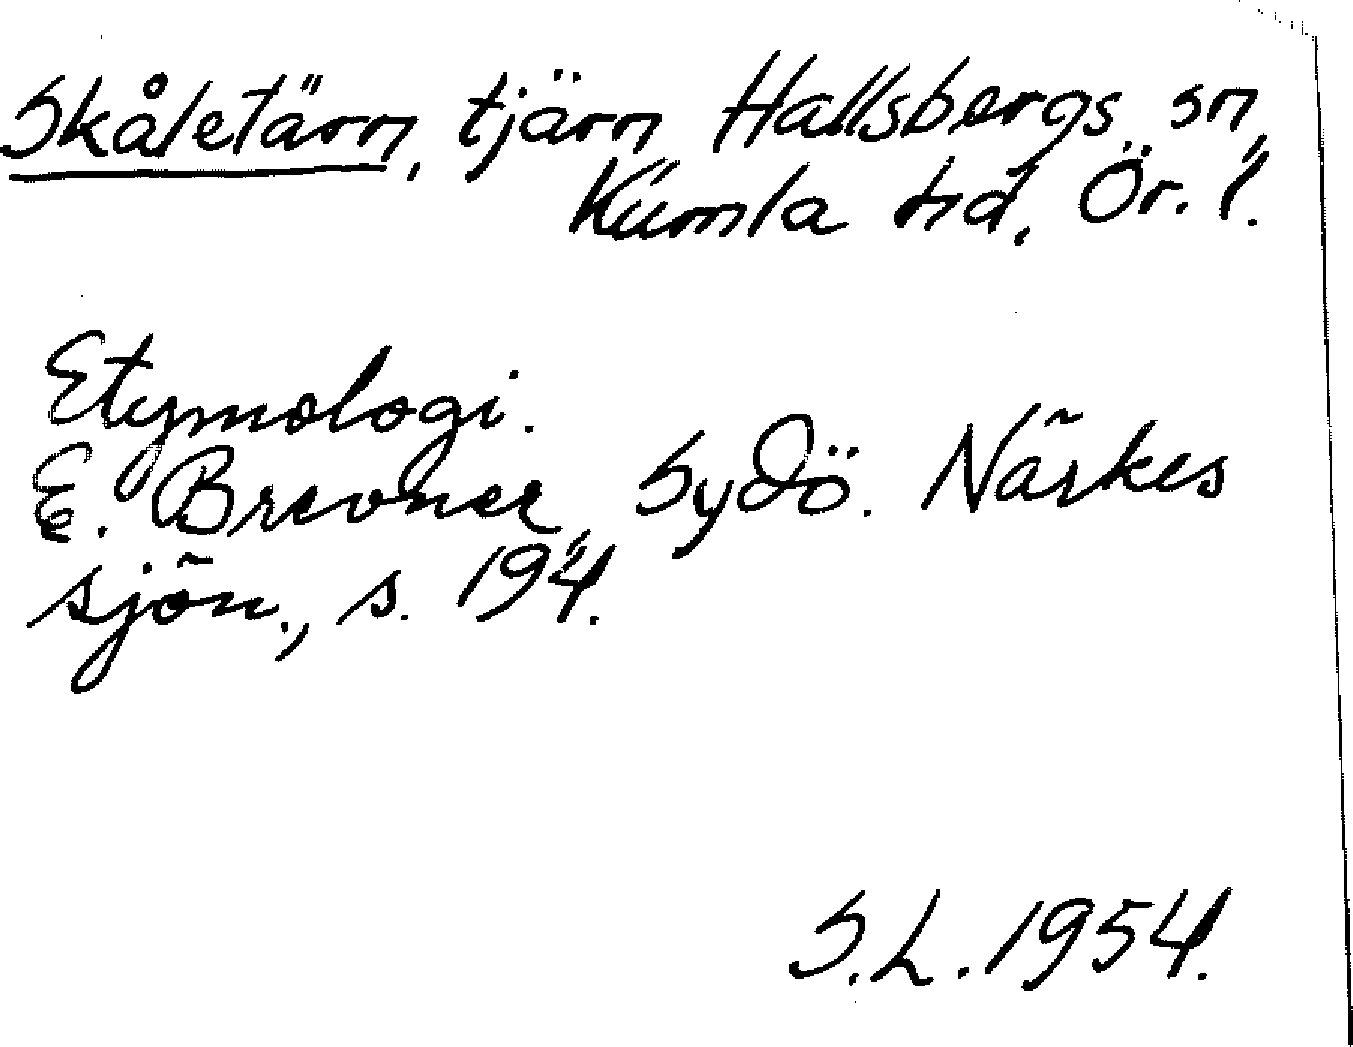 Skåletärn, tjärn Hallsbergs sn,
Kumla hd, Ör. l.
Etymologi.
E. Brevner, Sydö. Närkes
sjön., s. 194.
S.L. 1954.